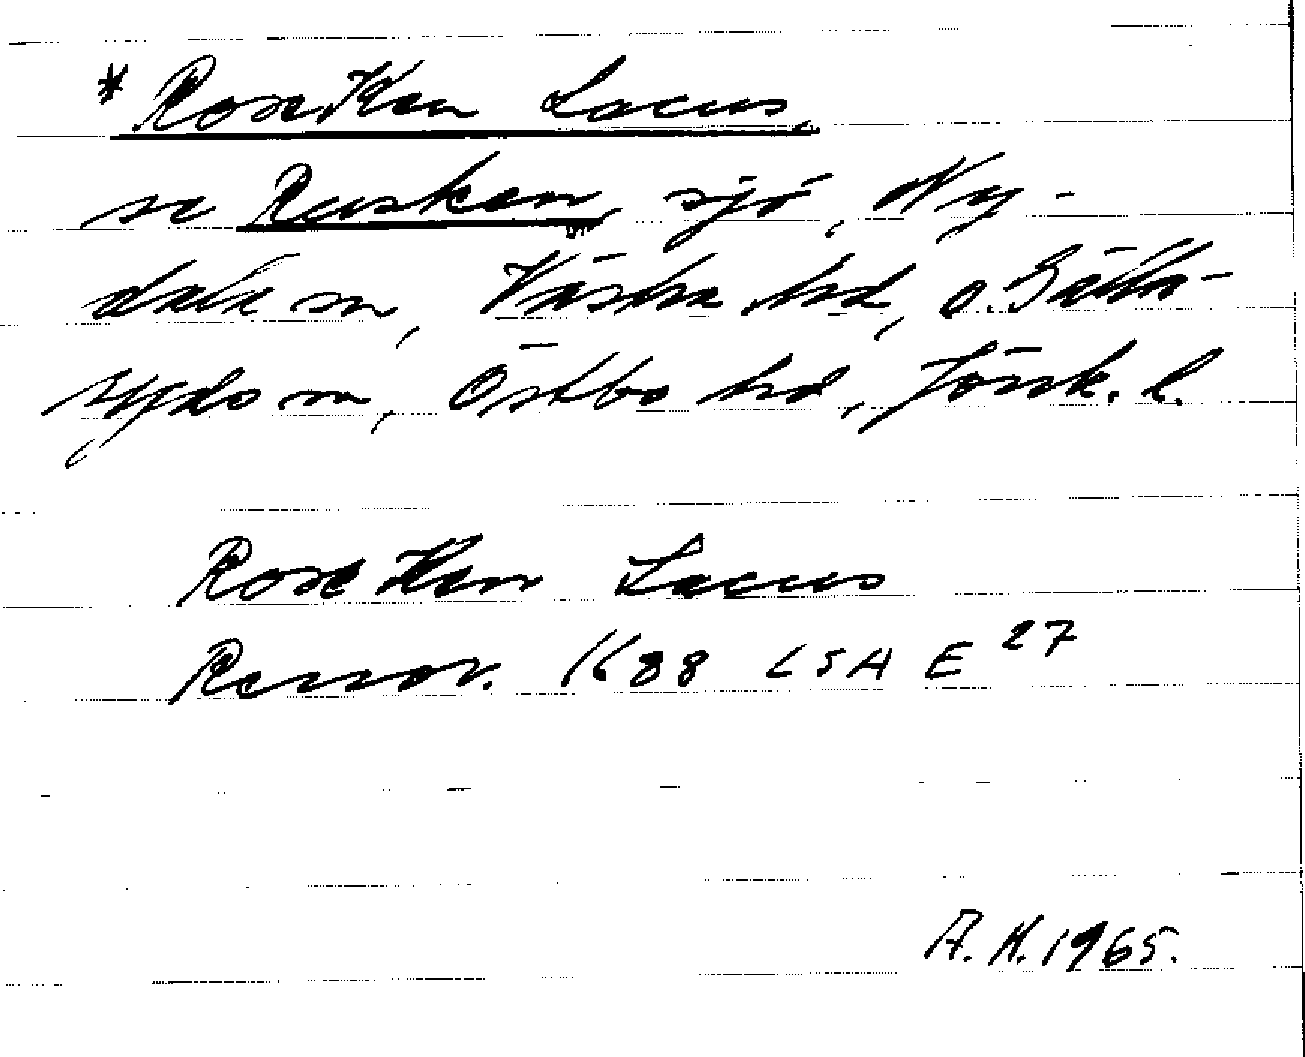 * RoseKen Lacus,
se Rusken, sjö, Ny-
dala sn, Västra hd, o. Gälla-
ryds sn, Östbo hd, Jönk. l.
RoseKen Lacus
Rannsor. 1688 LSA E 27
A.H. 1965.